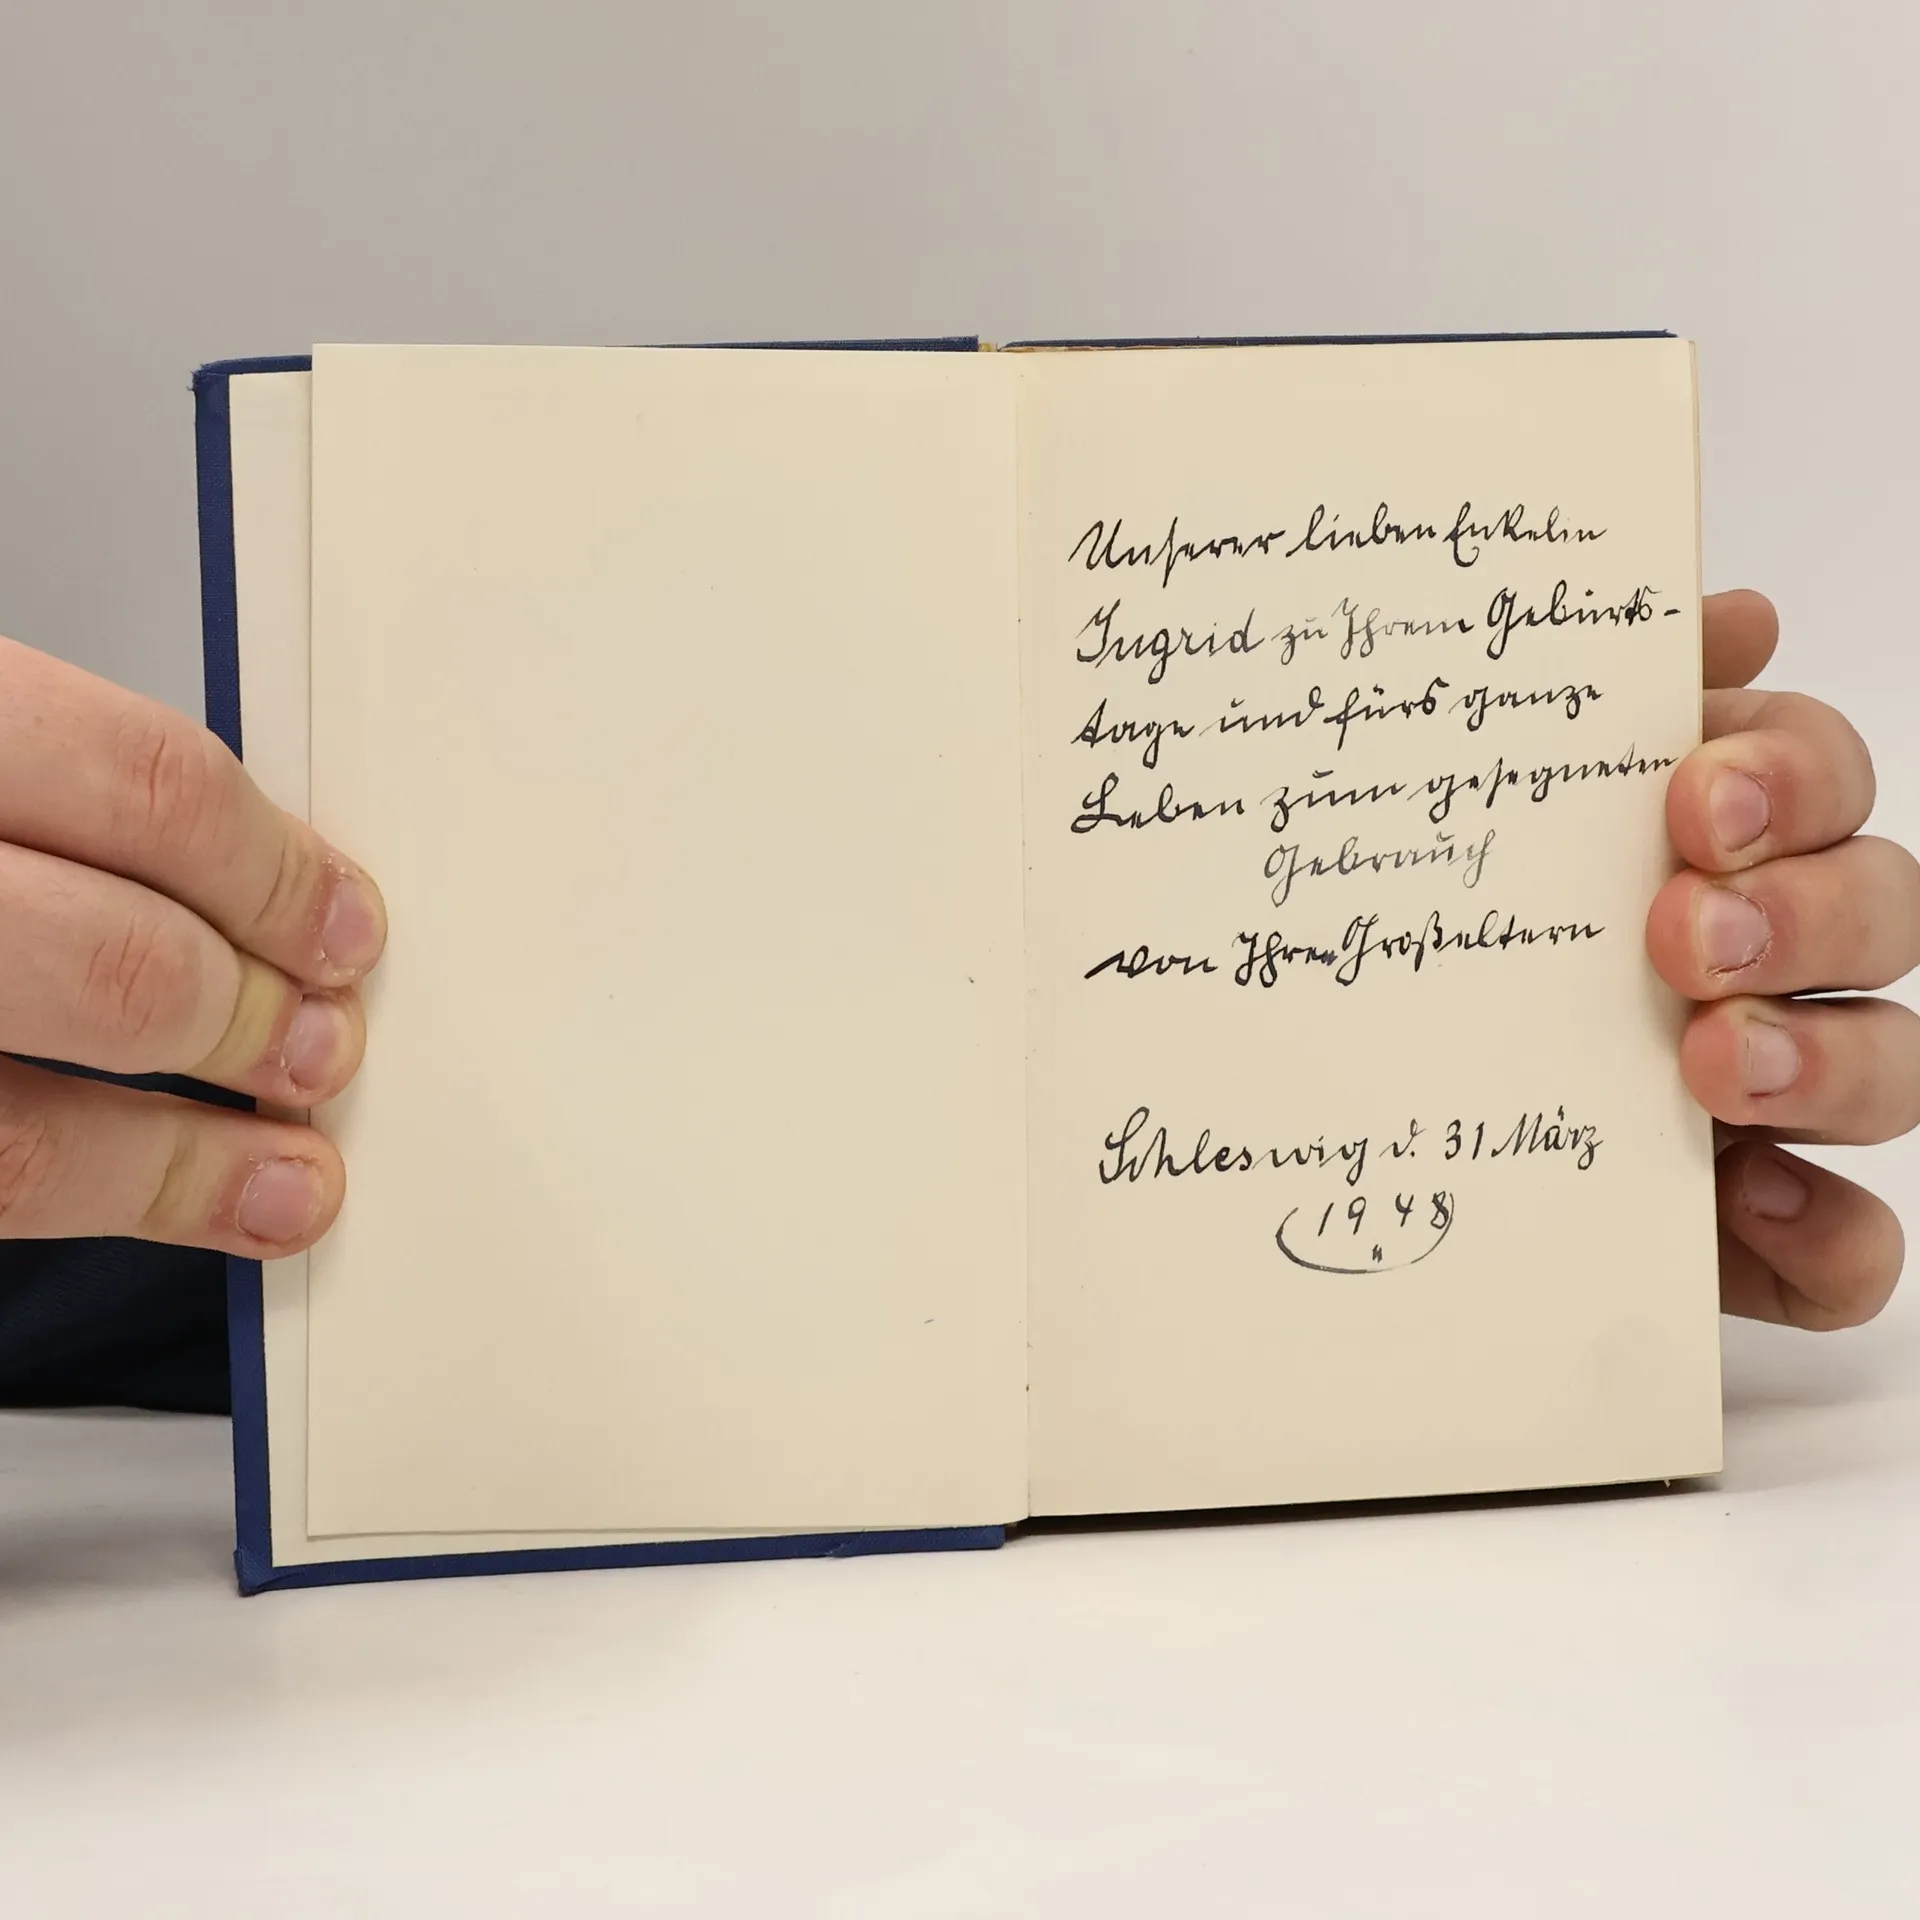 Unserer lieben Enkelin
Ingrid zu Ihrem Geburts-
tage und fürs ganze
Leben zum gesegneten
Gebrauch
von Ihren Großeltern
Schleswig d. 31 März
1948